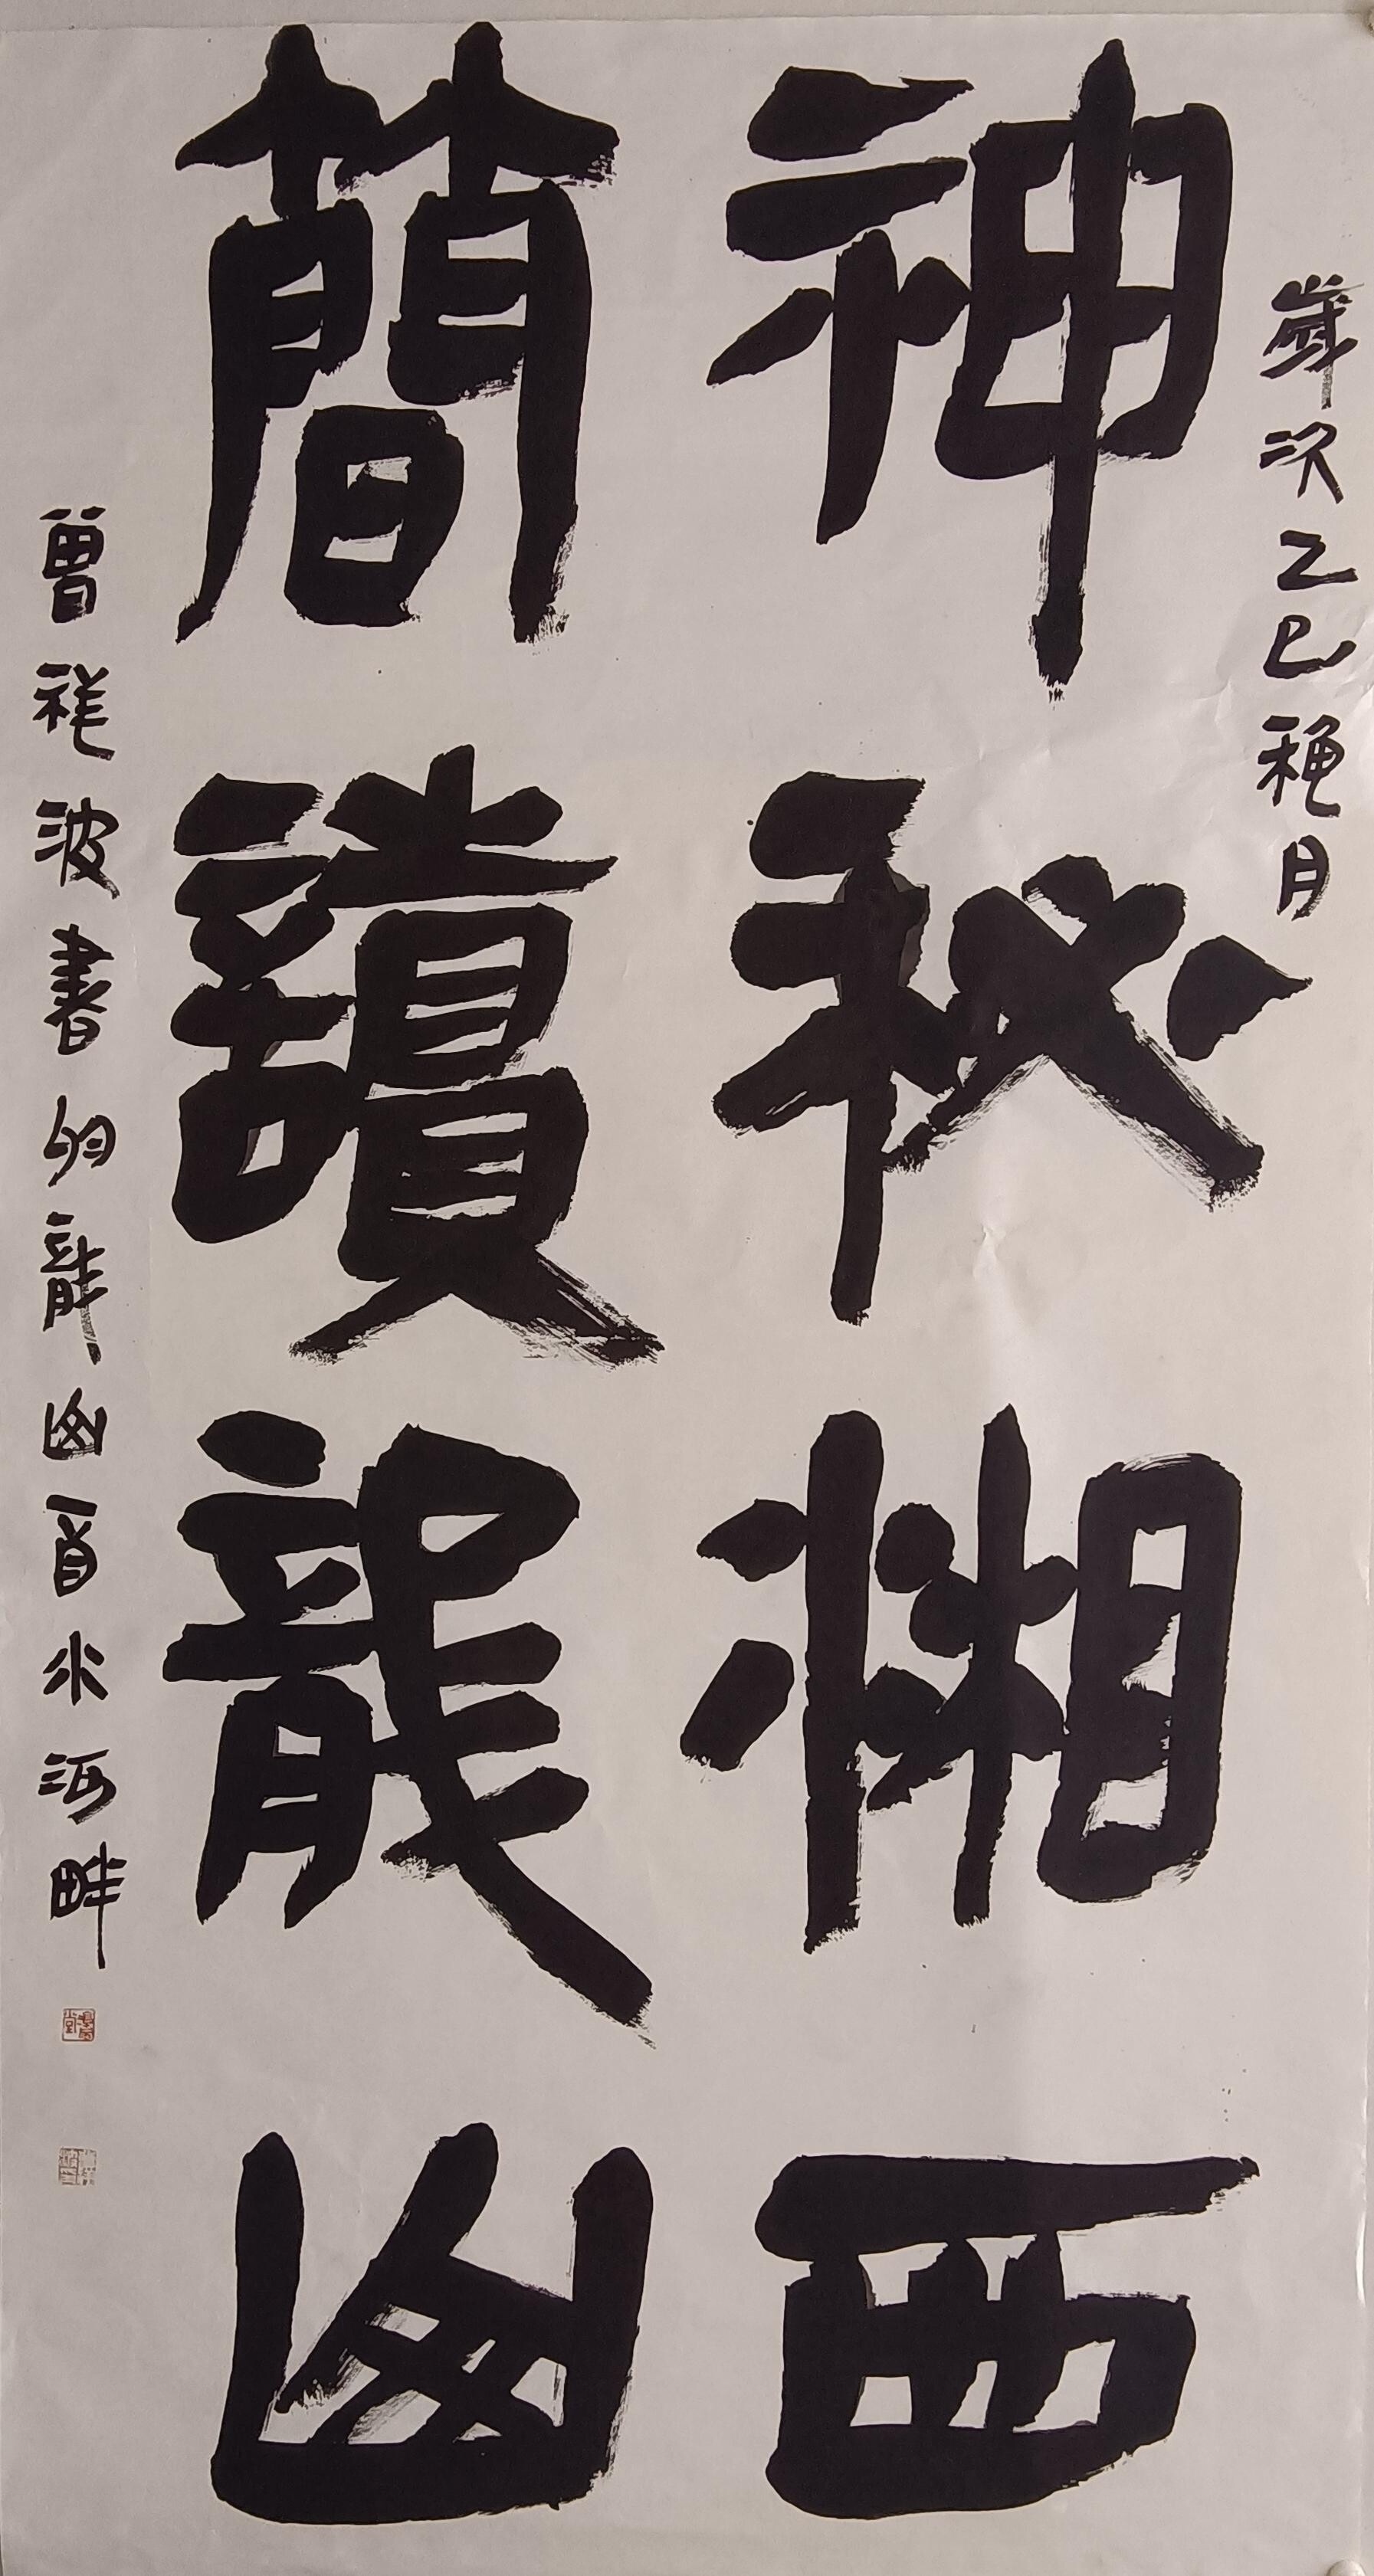 歲次乙巳穐月
神秘湘西
簡讀龍山
曾祥波書於龍山酉水河畔